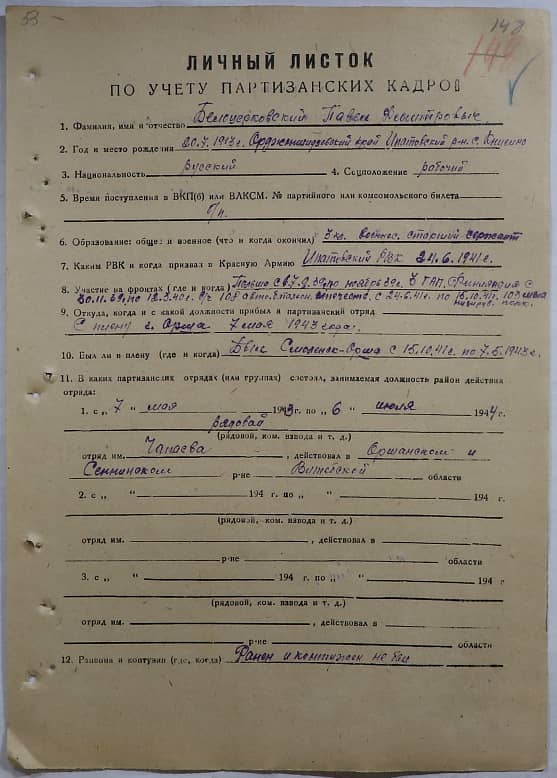 53 148
ЛИЧНЫЙ ЛИСТОК
ПО УЧЕТУ ПАРТИЗАНСКИХ КАДРОВ
1. Фамилия, имя и отчество Белоцерковский Павел Дмитровыч
2. Год и место рождения 20.7.1917г. Орджоникидзевский край Ипатовский р-н. с. Кивино
3. Национальность русский 4. Соцположение рабочий
5. Время поступления в ВКП(б) или ВЛКСМ. № партийного или комсомольского билета
б/п.
6. Образование: общее и военное (что и когда окончил) 3 кл. военное. старший сержант
7. Каким РВК и когда призван в Красную Армию Ипатовский РВК 24.6.1941г.
8. Участие на фронтах (где и когда) Польша с 17.9.39г. по ноябрь 39г. 3 ГАП. Финляндия с
30.11.39, по 13.3.40г. 108 с 24.6.41г. по 15.10.41г.
9. Откуда, когда и с какой должности прибыл в партизанский отряд
С плену г. Орша 7 мая 1943 года.
10. Был ли в плену (где и когда) Был Смоленск-Орша с 15.10.41г. по 7.5.1943г.
11. В каких партизанских отрядах (или группах) состоял, занимаемая должность район действия
отряда:
1. с „ 7 “ мая 1943 г. по „ 6 “ июля 1944 г.
рядовой
(рядовой, ком. взвода и т. д.)
отряд им. Чапаева, действовал в Оршанском и
Сеннинском р-не Витебской области
2. с „ “ 194 г. по „ “ 194 г.
(рядовой, ком. взвода и т. д.)
отряд им. , действовал в
р-не области
3. с „ “ 194 г. по „ “ 194 г
(рядовой, ком. взвода и т. д.)
отряд им. , действовал в
р-не области
12. Ранения и контузии (где, когда) Ранен и контужен не был